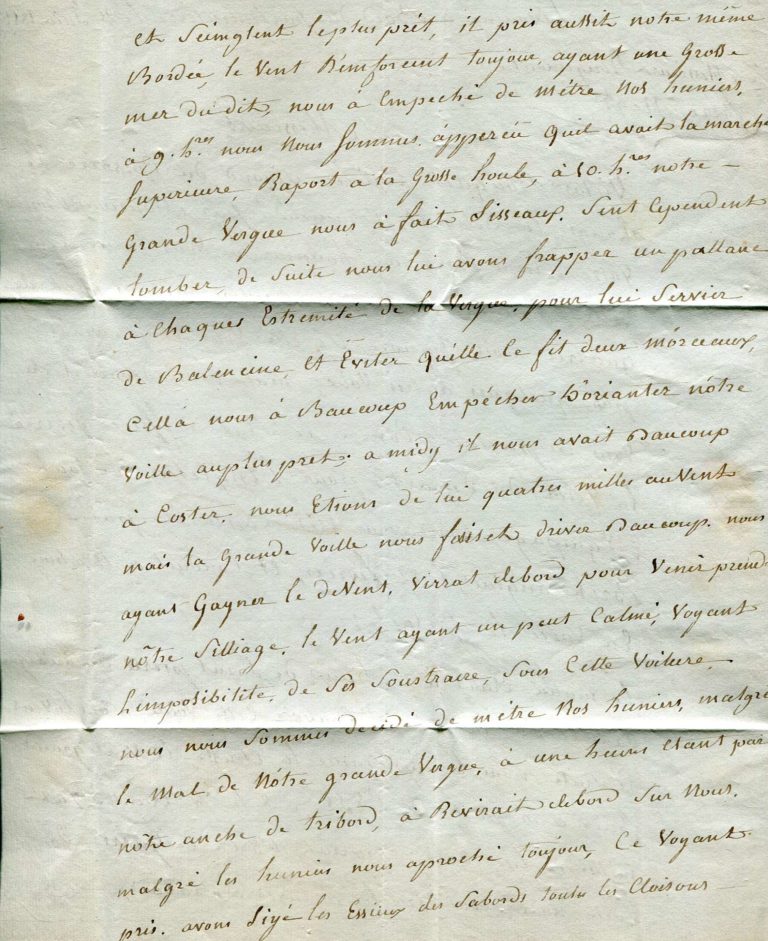 et Seinglent leplus prét, it pris aussit notre même
Bordée, le Vent Renforcent toujour, ayant une Grosse
mer du dit, nous à Empeché de métre Nos huniers,
à 9. h.res nous Nous sommes apperçu quil avait la marche
superieure, Raport a la Grosse houle, à 10. h.res notre –
Grande Vergue nous à fait Cependent
tomber, de Suite nous lui avons frapper un pallanc
à Chaques Extremité de la Vergue, pour lui Servier
de Balencine, et Eviter quélle Ce fit deux mórceaux,
Cellà nous à Baucoup Empécher D'orianter nótre
Voille auplus pret; a midy it nous avait Baucoup
à Coster, nous Etions de lui quatres milles au Vent
mais la Grande Voille nous faisset driver Baucoup. nous
ayant Gagner le deVent, Virrat debord pour Venir prend
nôtre Silliage, le Vent ayant un peut Calmé, Voyant
L'imposibilité, de Ses Soustraire, Sous Cette Voilure,
nous nous Sommes decidé de métre Nos huniers, malgré
le Mal de Nótre grande Vergue, à une heures Etant par
nôtre anche de tribord, à Revirait debord Sur Nous,
malgré les huniers nous aproché toujour, Ce Voyant
pris. avons les des Sabords toutes les Cloisons –